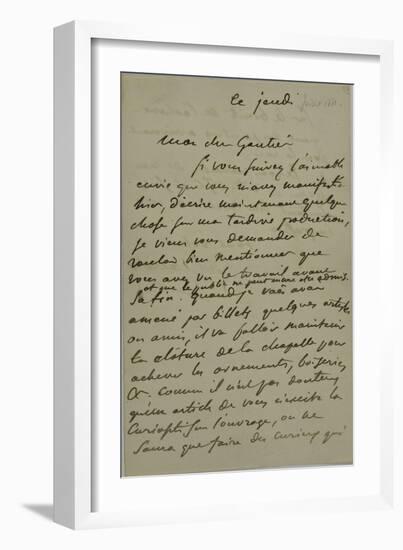 ce jeudi
Mon cher Gautier
Si vous suivez l'aimable
envie que vous m'avez manifestée
hier, d'écrire maintenant quelque
chose sur ma tardive production,
je viens vous demander de
vouloir bien mentionner que
vous avez vu le travail avant
et que le public ne peut encore être admis.
sa fin. Quand je vous
amené par billets quelques artistes
ou amis, il va falloir maintenir
la clôture de la chapelle pour
achever les ornements, boiseries
&. Comme il n'est pas douteux
qu'un article de vous n'excite la
curiosité sur l'ouvrage, on ne
saura que faire des curieux qui